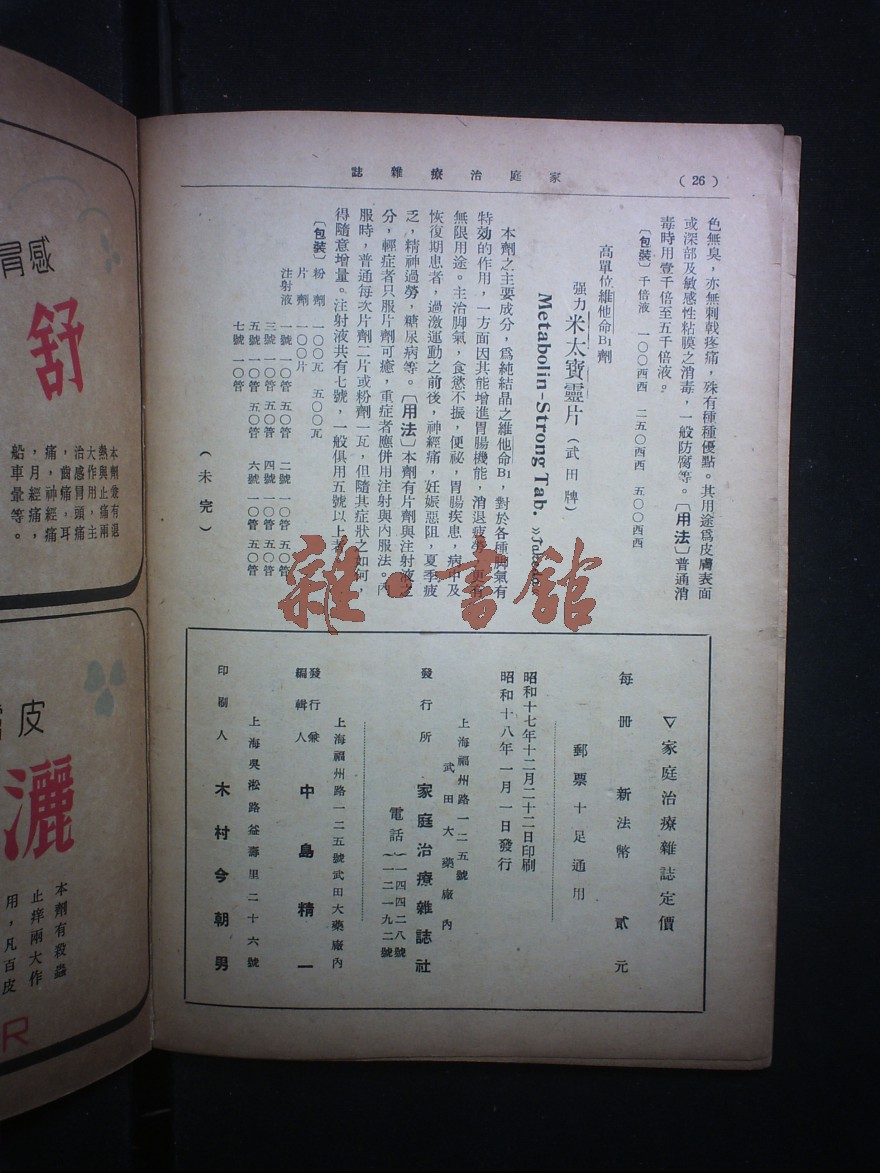 (26)
家庭治療雜誌
色無臭，亦無刺戟疼痛，殊有種種優點。其用途爲皮膚表面
或深部及敏感性粘膜之消毒，一般防腐等。〔用法〕普通消
毒時用壹千倍至五千倍液。
〔包裝〕千倍液 一〇〇西西 二五〇西西 五〇〇西西
高單位維他命B1劑
强力米太寶靈片（武田牌）
Metabolin-Strong Tab. »Takeda«
本劑之主要成分，爲純結晶之維他命B1，對於各種脚氣有
特効的作用，一方面因其能增進胃腸機能，消退疲勞，更有
無限用途。主治脚氣，食慾不振，便祕，胃腸疾患，病中及
恢復期患者，過激運動之前後，神經痛，妊娠惡阻，夏季疲
乏，精神過勞，糖尿病等。〔用法〕本劑有片劑與注射液之
分，輕症者只服片劑可癒，重症者應併用注射與內服法。內
服時，普通每次片劑二片或粉劑一瓦，但隨其症狀之如何
得隨意增量。注射液共有七號，一般俱用五號以上者
〔包裝〕粉劑 一〇〇瓦 五〇〇瓦
片劑 一〇〇片
注射液 一號 一〇管 五〇管 二號 一〇管 五〇管
三號 一〇管 五〇管 四號 一〇管 五〇管
五號 一〇管 五〇管 六號 一〇管 五〇管
七號 一〇管
（未完）
雜·書館
▽家庭治療雜誌定價
每冊 新法幣 貳元
郵票十足通用
昭和十七年十二月二十二日印刷
昭和十八年一月一日發行
上海福州路一二五號
武田大藥廠內
發行所 家庭治療雜誌社
電話 一一四四二八號
一二一九二號
上海福州路一二五號武田大藥廠內
發行兼
編輯人 中島精一
上海吳淞路益壽里二十六號
印刷人 木村今朝男
胃感
舒
本劑兼有退
熱與止痛兩
大作用，主
治感冒頭痛
，齒痛，耳
痛，神經痛
，月經痛，
船車暈等。
皮
灑
本劑有殺蟲
止痒兩大作
用，凡百皮
R